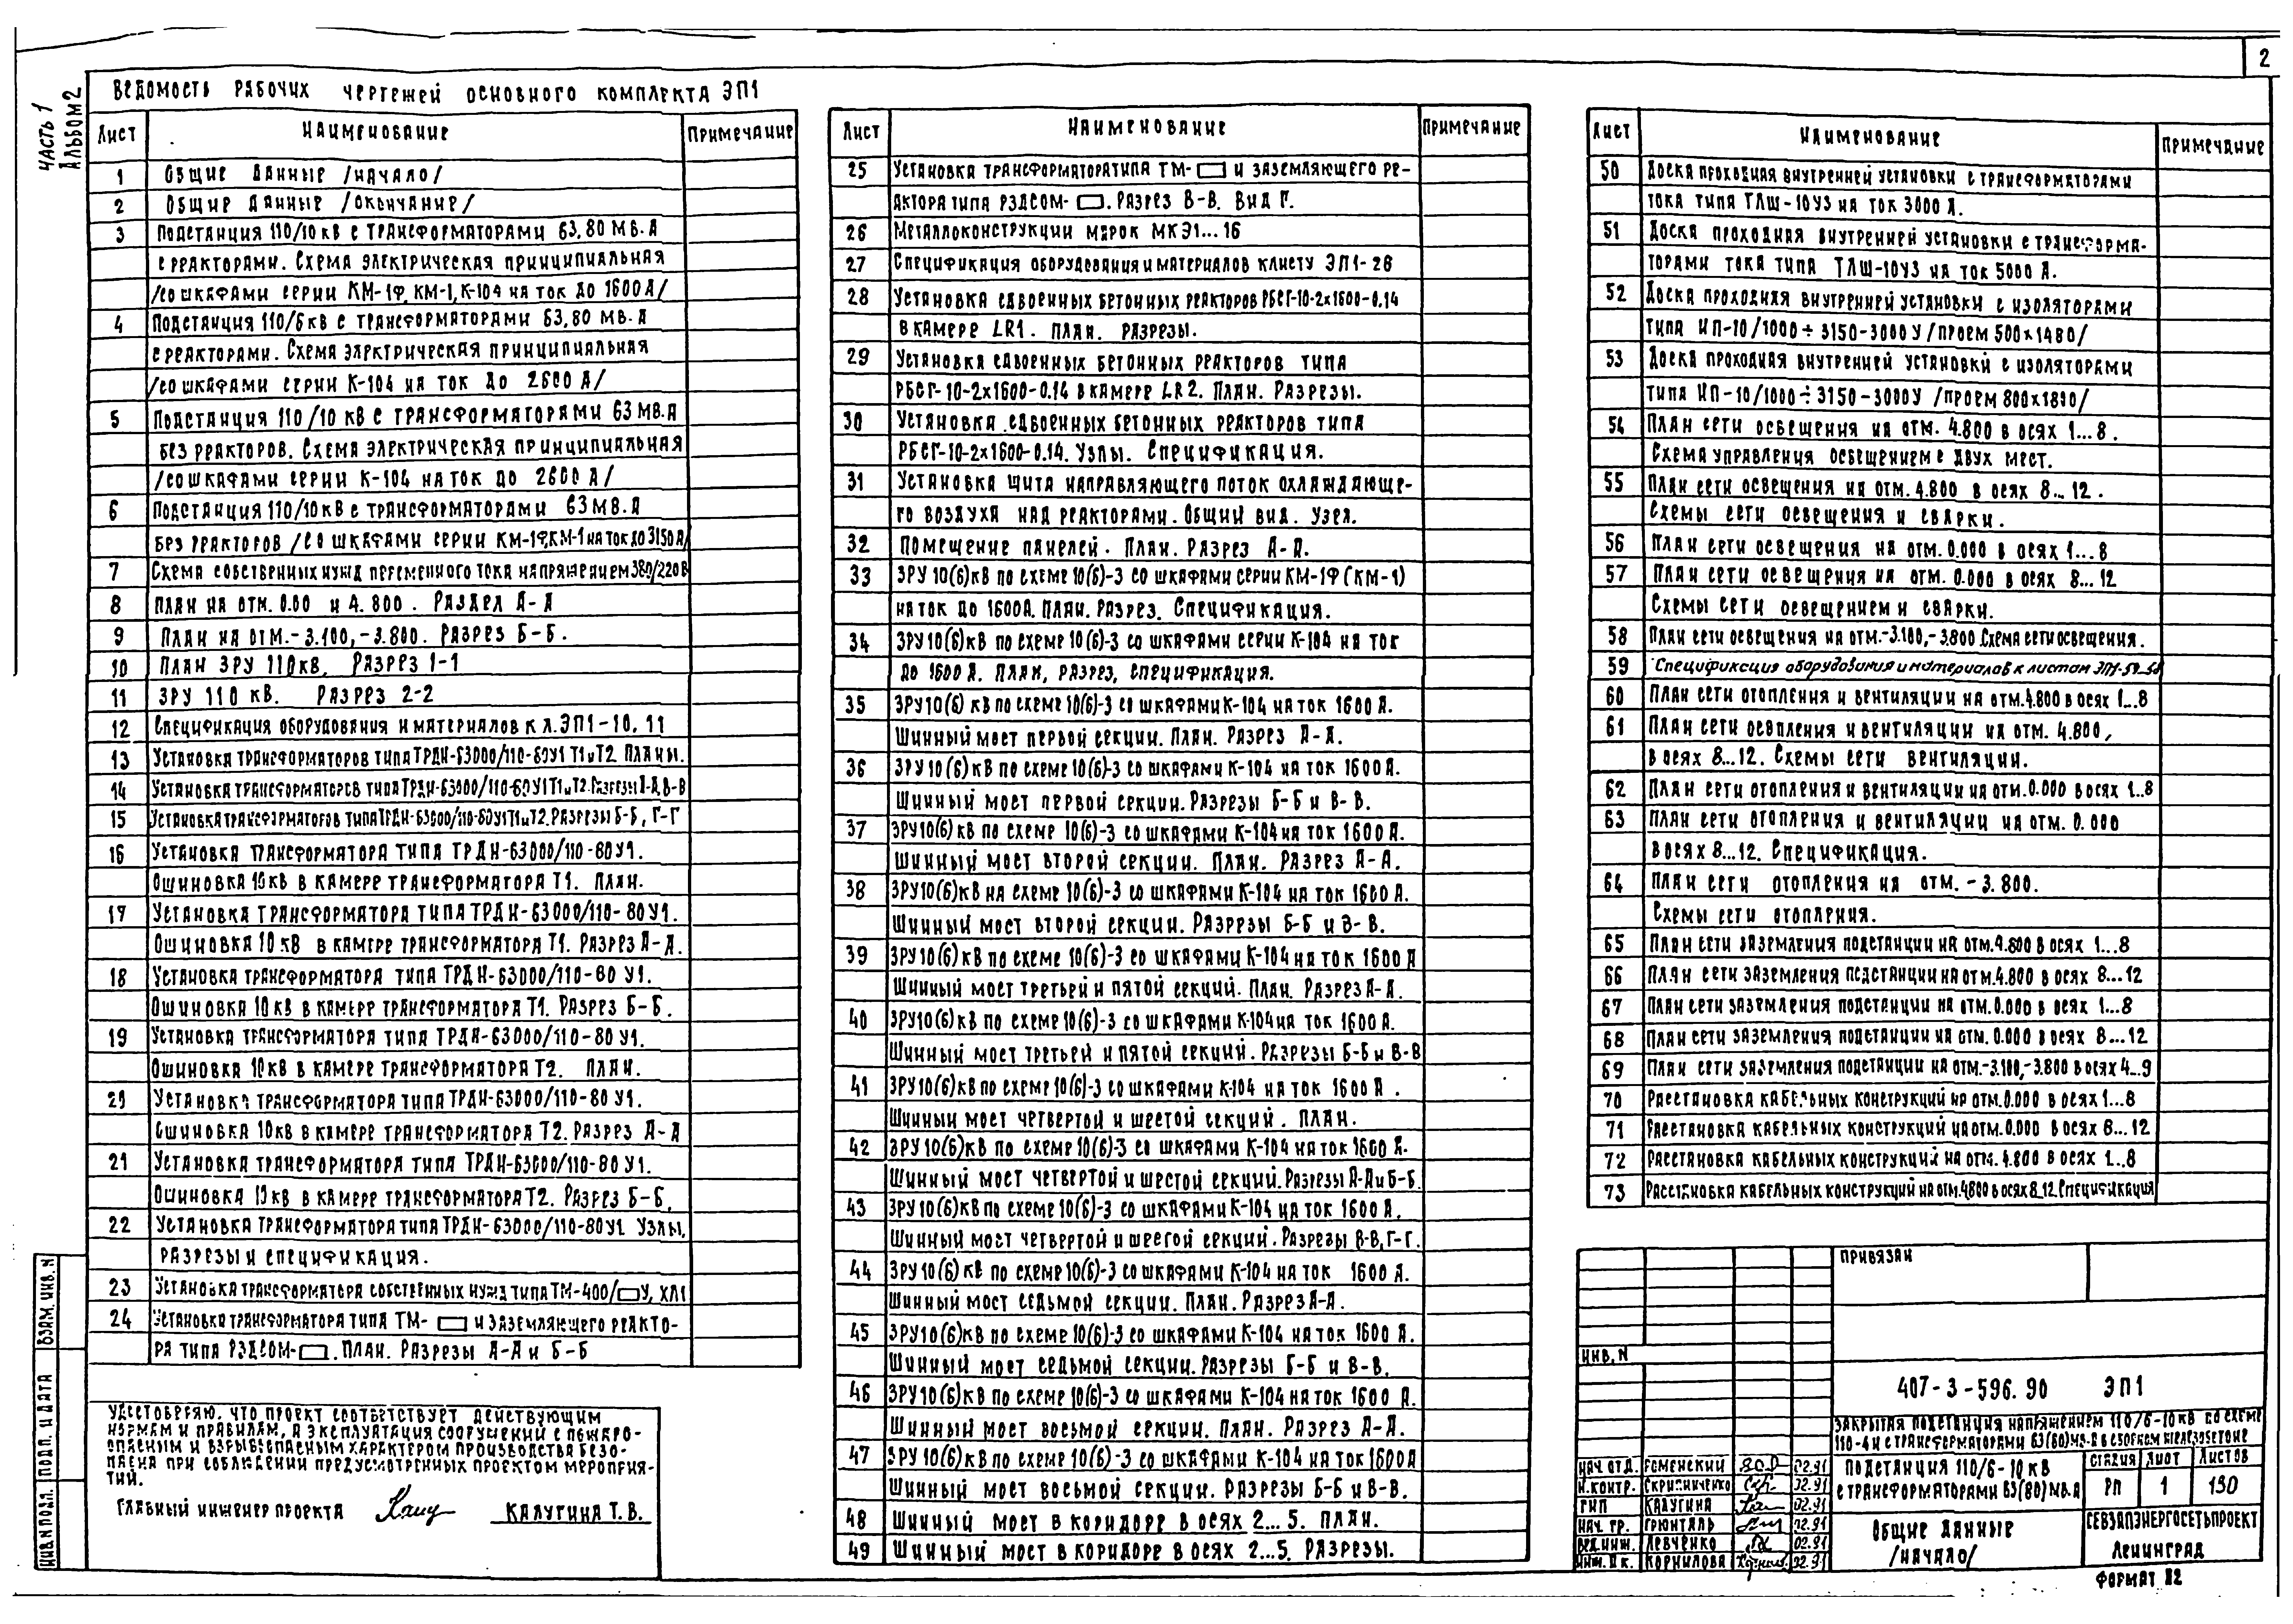 2
ЧАСТЬ 1
АЛЬБОМ 2
ВЕДОМОСТЬ РАБОЧИХ ЧЕРТЕЖЕЙ ОСНОВНОГО КОМПЛЕКТА ЭП1
ЛИСТ НАИМЕНОВАНИЕ ПРИМЕЧАНИЕ
1 ОБЩИЕ ДАННЫЕ /НАЧАЛО/
2 ОБЩИЕ ДАННЫЕ /ОКОНЧАНИЕ/
3 ПОДСТАНЦИЯ 110/10 КВ С ТРАНСФОРМАТОРАМИ 63,80 МВ.А
С РЕАКТОРАМИ. СХЕМА ЭЛЕКТРИЧЕСКАЯ ПРИНЦИПИАЛЬНАЯ
/СО ШКАФАМИ СЕРИИ КМ-1Ф, КМ-1, К-104 НА ТОК ДО 1600 А/
4 ПОДСТАНЦИЯ 110/6 КВ С ТРАНСФОРМАТОРАМИ 63,80 МВ.А
С РЕАКТОРАМИ. СХЕМА ЭЛЕКТРИЧЕСКАЯ ПРИНЦИПИАЛЬНАЯ
/СО ШКАФАМИ СЕРИИ К-104 НА ТОК ДО 2600 А/
5 ПОДСТАНЦИЯ 110/10 КВ С ТРАНСФОРМАТОРАМИ 63 МВ.А
БЕЗ РЕАКТОРОВ. СХЕМА ЭЛЕКТРИЧЕСКАЯ ПРИНЦИПИАЛЬНАЯ
/СО ШКАФАМИ СЕРИИ К-104 НА ТОК ДО 2600 А/
6 ПОДСТАНЦИЯ 110/10 КВ С ТРАНСФОРМАТОРАМИ 63 МВ.А
БЕЗ РЕАКТОРОВ /СО ШКАФАМИ СЕРИИ КМ-1Ф, КМ-1 НА ТОК ДО 3150 А/
7 СХЕМА СОБСТВЕННЫХ НУЖД ПЕРЕМЕННОГО ТОКА НАПРЯЖЕНИЕМ 380/220 В
8 ПЛАН НА ОТМ. 0.00 И 4.800. РАЗДЕЛ А-А
9 ПЛАН НА ОТМ.-3.100,-3.800. РАЗРЕЗ Б-Б.
10 ПЛАН ЗРУ 110 КВ, РАЗРЕЗ 1-1
11 ЗРУ 110 КВ. РАЗРЕЗ 2-2
12 СПЕЦИФИКАЦИЯ ОБОРУДОВАНИЯ И МАТЕРИАЛОВ К Л.ЭП1-10, 11
13 УСТАНОВКА ТРАНСФОРМАТОРОВ ТИПА ТРДН-63000/110-80У1 Т1 И Т2. ПЛАНЫ.
14 УСТАНОВКА ТРАНСФОРМАТОРОВ ТИПА ТРДН-63000/110-80У1 Т1 И Т2. РАЗРЕЗЫ А-А, В-В
15 УСТАНОВКА ТРАНСФОРМАТОРОВ ТИПА ТРДН-63000/110-80У1 Т1 И Т2. РАЗРЕЗЫ Б-Б, Г-Г
16 УСТАНОВКА ТРАНСФОРМАТОРА ТИПА ТРДН-63000/110-80У1.
ОШИНОВКА 10 КВ В КАМЕРЕ ТРАНСФОРМАТОРА Т1. ПЛАН.
17 УСТАНОВКА ТРАНСФОРМАТОРА ТИПА ТРДН-63000/110-80У1.
ОШИНОВКА 10 КВ В КАМЕРЕ ТРАНСФОРМАТОРА Т1. РАЗРЕЗ А-А.
18 УСТАНОВКА ТРАНСФОРМАТОРА ТИПА ТРДН-63000/110-80 У1.
ОШИНОВКА 10 КВ В КАМЕРЕ ТРАНСФОРМАТОРА Т1. РАЗРЕЗ Б-Б.
19 УСТАНОВКА ТРАНСФОРМАТОРА ТИПА ТРДН-63000/110-80 У1.
ОШИНОВКА 10 КВ В КАМЕРЕ ТРАНСФОРМАТОРА Т2. ПЛАН.
20 УСТАНОВКА ТРАНСФОРМАТОРА ТИПА ТРДН-63000/110-80 У1.
ОШИНОВКА 10 КВ В КАМЕРЕ ТРАНСФОРМАТОРА Т2. РАЗРЕЗ А-А
21 УСТАНОВКА ТРАНСФОРМАТОРА ТИПА ТРДН-63000/110-80 У1.
ОШИНОВКА 10 КВ В КАМЕРЕ ТРАНСФОРМАТОРА Т2. РАЗРЕЗ Б-Б.
22 УСТАНОВКА ТРАНСФОРМАТОРА ТИПА ТРДН-63000/110-80У1. УЗЛЫ,
РАЗРЕЗЫ И СПЕЦИФИКАЦИЯ.
23 УСТАНОВКА ТРАНСФОРМАТОРА СОБСТВЕННЫХ НУЖД ТИПА ТМ-400/▭У, ХЛ1
24 УСТАНОВКА ТРАНСФОРМАТОРА ТИПА ТМ-▭ И ЗАЗЕМЛЯЮЩЕГО РЕАКТО-
РА ТИПА РЗДСОМ-▭. ПЛАН. РАЗРЕЗЫ А-А И Б-Б
УДОСТОВЕРЯЮ, ЧТО ПРОЕКТ СООТВЕТСТВУЕТ ДЕЙСТВУЮЩИМ
НОРМАМ И ПРАВИЛАМ, А ЭКСПЛУАТАЦИЯ СООРУЖЕНИЙ С ПОЖАРО-
ОПАСНЫМ И ВЗРЫВООПАСНЫМ ХАРАКТЕРОМ ПРОИЗВОДСТВА БЕЗО-
ПАСНА ПРИ СОБЛЮДЕНИИ ПРЕДУСМОТРЕННЫХ ПРОЕКТОМ МЕРОПРИЯ-
ТИЙ.
ГЛАВНЫЙ ИНЖЕНЕР ПРОЕКТА КАЛУГИНА Т.В.
ИНВ.N ПОДЛ. ПОДП. И ДАТА ВЗАМ. ИНВ. N
ЛИСТ НАИМЕНОВАНИЕ ПРИМЕЧАНИЕ
25 УСТАНОВКА ТРАНСФОРМАТОРА ТИПА ТМ-▭ И ЗАЗЕМЛЯЮЩЕГО РЕ-
АКТОРА ТИПА РЗДСОМ-▭. РАЗРЕЗ В-В. ВИД Г.
26 МЕТАЛЛОКОНСТРУКЦИИ МАРОК МКЭ1...16
27 СПЕЦИФИКАЦИЯ ОБОРУДОВАНИЯ И МАТЕРИАЛОВ К ЛИСТУ ЭП1-26
28 УСТАНОВКА СДВОЕННЫХ БЕТОННЫХ РЕАКТОРОВ РБСГ-10-2х1600-0.14
В КАМЕРЕ LR1. ПЛАН. РАЗРЕЗЫ.
29 УСТАНОВКА СДВОЕННЫХ БЕТОННЫХ РЕАКТОРОВ ТИПА
РБСГ-10-2х1600-0.14 В КАМЕРЕ LR2. ПЛАН. РАЗРЕЗЫ.
30 УСТАНОВКА СДВОЕННЫХ БЕТОННЫХ РЕАКТОРОВ ТИПА
РБСГ-10-2х1600-0.14. УЗЛЫ. СПЕЦИФИКАЦИЯ.
31 УСТАНОВКА ЩИТА НАПРАВЛЯЮЩЕГО ПОТОК ОХЛАЖДАЮЩЕ-
ГО ВОЗДУХА НАД РЕАКТОРАМИ. ОБЩИЙ ВИД. УЗЕЛ.
32 ПОМЕЩЕНИЕ ПАНЕЛЕЙ. ПЛАН. РАЗРЕЗ А-А.
33 ЗРУ 10(6)КВ ПО СХЕМЕ 10(6)-3 СО ШКАФАМИ СЕРИИ КМ-1Ф(КМ-1)
НА ТОК ДО 1600А. ПЛАН. РАЗРЕЗ. СПЕЦИФИКАЦИЯ.
34 ЗРУ 10(6)КВ ПО СХЕМЕ 10(6)-3 СО ШКАФАМИ СЕРИИ К-104 НА ТОК
ДО 1600 А. ПЛАН, РАЗРЕЗ, СПЕЦИФИКАЦИЯ.
35 ЗРУ 10(6) КВ ПО СХЕМЕ 10(6)-3 СО ШКАФАМИ К-104 НА ТОК 1600 А.
ШИННЫЙ МОСТ ПЕРВОЙ СЕКЦИИ. ПЛАН. РАЗРЕЗ А-А.
36 ЗРУ 10(6)КВ ПО СХЕМЕ 10(6)-3 СО ШКАФАМИ К-104 НА ТОК 1600 А.
ШИННЫЙ МОСТ ПЕРВОЙ СЕКЦИИ. РАЗРЕЗЫ Б-Б И В-В.
37 ЗРУ 10(6) КВ ПО СХЕМЕ 10(6)-3 СО ШКАФАМИ К-104 НА ТОК 1600 А.
ШИННЫЙ МОСТ ВТОРОЙ СЕКЦИИ. ПЛАН. РАЗРЕЗ А-А.
38 ЗРУ 10(6)КВ НА СХЕМЕ 10(6)-3 СО ШКАФАМИ К-104 НА ТОК 1600 А.
ШИННЫЙ МОСТ ВТОРОЙ СЕКЦИИ. РАЗРЕЗЫ Б-Б И В-В.
39 ЗРУ 10(6)КВ ПО СХЕМЕ 10(6)-3 СО ШКАФАМИ К-104 НА ТОК 1600 А
ШИННЫЙ МОСТ ТРЕТЬЕЙ И ПЯТОЙ СЕКЦИЙ. ПЛАН. РАЗРЕЗ А-А.
40 ЗРУ 10(6)КВ ПО СХЕМЕ 10(6)-3 СО ШКАФАМИ К-104 НА ТОК 1600 А.
ШИННЫЙ МОСТ ТРЕТЬЕЙ И ПЯТОЙ СЕКЦИЙ. РАЗРЕЗЫ Б-Б И В-В
41 ЗРУ 10(6)КВ ПО СХЕМЕ 10(6)-3 СО ШКАФАМИ К-104 НА ТОК 1600 А.
ШИННЫЙ МОСТ ЧЕТВЕРТОЙ И ШЕСТОЙ СЕКЦИЙ. ПЛАН.
42 ЗРУ 10(6)КВ ПО СХЕМЕ 10(6)-3 СО ШКАФАМИ К-104 НА ТОК 1600 А.
ШИННЫЙ МОСТ ЧЕТВЕРТОЙ И ШЕСТОЙ СЕКЦИЙ. РАЗРЕЗЫ А-А И Б-Б.
43 ЗРУ 10(6)КВ ПО СХЕМЕ 10(6)-3 СО ШКАФАМИ К-104 НА ТОК 1600 А.
ШИННЫЙ МОСТ ЧЕТВЕРТОЙ И ШЕСТОЙ СЕКЦИЙ. РАЗРЕЗЫ В-В, Г-Г.
44 ЗРУ 10(6) КВ ПО СХЕМЕ 10(6)-3 СО ШКАФАМИ К-104 НА ТОК 1600 А.
ШИННЫЙ МОСТ СЕДЬМОЙ СЕКЦИИ. ПЛАН. РАЗРЕЗ А-А.
45 ЗРУ 10(6)КВ ПО СХЕМЕ 10(6)-3 СО ШКАФАМИ К-104 НА ТОК 1600 А.
ШИННЫЙ МОСТ СЕДЬМОЙ СЕКЦИИ. РАЗРЕЗЫ Б-Б И В-В.
46 ЗРУ 10(6)КВ ПО СХЕМЕ 10(6)-3 СО ШКАФАМИ К-104 НА ТОК 1600 А.
ШИННЫЙ МОСТ ВОСЬМОЙ СЕКЦИИ. ПЛАН. РАЗРЕЗ А-А.
47 ЗРУ 10(6)КВ ПО СХЕМЕ 10(6)-3 СО ШКАФАМИ К-104 НА ТОК 1600А
ШИННЫЙ МОСТ ВОСЬМОЙ СЕКЦИИ. РАЗРЕЗЫ Б-Б И В-В.
48 ШИННЫЙ МОСТ В КОРИДОРЕ В ОСЯХ 2...5. ПЛАН.
49 ШИННЫЙ МОСТ В КОРИДОРЕ В ОСЯХ 2...5. РАЗРЕЗЫ.
ЛИСТ НАИМЕНОВАНИЕ ПРИМЕЧАНИЕ
50 ДОСКА ПРОХОДНАЯ ВНУТРЕННЕЙ УСТАНОВКИ С ТРАНСФОРМАТОРАМИ
ТОКА ТИПА ТЛШ-10У3 НА ТОК 3000 А.
51 ДОСКА ПРОХОДНАЯ ВНУТРЕННЕЙ УСТАНОВКИ С ТРАНСФОРМА-
ТОРАМИ ТОКА ТИПА ТЛШ-10У3 НА ТОК 5000 А.
52 ДОСКА ПРОХОДНАЯ ВНУТРЕННЕЙ УСТАНОВКИ С ИЗОЛЯТОРАМИ
ТИПА ИП-10/1000÷3150-3000 У /ПРОЕМ 500х1480/
53 ДОСКА ПРОХОДНАЯ ВНУТРЕННЕЙ УСТАНОВКЙ С ИЗОЛЯТОРАМИ
ТИПА ИП-10/1000÷3150-3000У /ПРОЕМ 800х1800/
54 ПЛАН СЕТИ ОСВЕЩЕНИЯ НА ОТМ. 4.800 В ОСЯХ 1...8.
СХЕМА УПРАВЛЕНИЯ ОСВЕЩЕНИЕМ С ДВУХ МЕСТ.
55 ПЛАН СЕТИ ОСВЕЩЕНИЯ НА ОТМ. 4.800 В ОСЯХ 8...12.
СХЕМЫ СЕТИ ОСВЕЩЕНИЯ И СВАРКИ.
56 ПЛАН СЕТИ ОСВЕЩЕНИЯ НА ОТМ. 0.000 В ОСЯХ 1...8
57 ПЛАН СЕТИ ОСВЕЩЕНИЯ НА ОТМ. 0.000 В ОСЯХ 8...12
СХЕМЫ СЕТИ ОСВЕЩЕНИЕМ И СВАРКИ.
58 ПЛАН СЕТИ ОСВЕЩЕНИЯ НА ОТМ.-3.100,-3.800 СХЕМА СЕТИ ОСВЕЩЕНИЯ.
59 Спецификация оборудования и материалов к листам
60 ПЛАН СЕТИ ОТОПЛЕНИЯ И ВЕНТИЛЯЦИИ НА ОТМ.4.800 В ОСЯХ 1...8
61 ПЛАН СЕТИ ОСВПЛЕНИЯ И ВЕНТИЛЯЦИИ НА ОТМ. 4.800,
В ОСЯХ 8...12. СХЕМЫ СЕТИ ВЕНТИЛЯЦИИ.
62 ПЛАН СЕТИ ОТОПЛЕНИЯ И ВЕНТИЛЯЦИИ НА ОТМ.0.000 В ОСЯХ 1...8
63 ПЛАН СЕТИ ОТОПЛЕНИЯ И ВЕНТИЛЯЦИИ НА ОТМ. 0.000
В ОСЯХ 8...12. СПЕЦИФИКАЦИЯ.
64 ПЛАН СЕТИ ОТОПЛЕНИЯ НА ОТМ. -3.800.
СХЕМЫ СЕТИ ОТОПЛЕНИЯ.
65 ПЛАН СЕТИ ЗАЗЕМЛЕНИЯ ПОДСТАНЦИИ НА ОТМ.4.800 В ОСЯХ 1...8
66 ПЛАН СЕТИ ЗАЗЕМЛЕНИЯ ПОДСТАНЦИИ НА ОТМ.4.800 В ОСЯХ 8...12
67 ПЛАН СЕТИ ЗАЗЕМЛЕНИЯ ПОДСТАНЦИИ НА ОТМ.0.000 В ОСЯХ 1...8
68 ПЛАН СЕТИ ЗАЗЕМЛЕНИЯ ПОДСТАНЦИИ НА ОТМ. 0.000 В ОСЯХ 8...12
69 ПЛАН СЕТИ ЗАЗЕМЛЕНИЯ ПОДСТАНЦИИ НА ОТМ.-3.100,-3.800 В ОСЯХ 4...9
70 РАССТАНОВКА КАБЕЛЬНЫХ КОНСТРУКЦИЙ НА ОТМ.0.000 В ОСЯХ 1...8
71 РАССТАНОВКА КАБЕЛЬНЫХ КОНСТРУКЦИЙ НА ОТМ.0.000 В ОСЯХ 8...12
72 РАССТАНОВКА КАБЕЛЬНЫХ КОНСТРУКЦИЙ НА ОТМ.4.800 В ОСЯХ 1...8
73 РАССТАНОВКА КАБЕЛЬНЫХ КОНСТРУКЦИЙ НА ОТМ.4.800 В ОСЯХ 8...12. СПЕЦИФИКАЦИЯ
ПРИВЯЗАН
ИНВ. N
407-3-596.90 ЭП1
ЗАКРЫТАЯ ПОДСТАНЦИЯ НАПРЯЖЕНИЕМ 110/6-10 КВ ПО СХЕМЕ
110-4Н С ТРАНСФОРМАТОРАМИ 63(80)МВ.А В СБОРНОМ ЖЕЛЕЗОБЕТОНЕ
НАЧ. ОТД. РОМЕНСКИЙ 02.91
Н.КОНТР. СКРИПНИЧЕНКО 02.91
ГИП КАЛУГИНА 02.91
НАЧ. ГР. ГРЮНТАЛЬ 02.91
ВЕД.ИНЖ. ЛЕВЧЕНКО 02.91
ИНЖ. II К. КОРНИЛОВА 02.91
ПОДСТАНЦИЯ 110/6-10 КВ
С ТРАНСФОРМАТОРАМИ 63(80) МВ.А
СТАДИЯ ЛИСТ ЛИСТОВ
РП 1 130
ОБЩИЕ ДАННЫЕ
/НАЧАЛО/
СЕВЗАПЭНЕРГОСЕТЬПРОЕКТ
ЛЕНИНГРАД
ФОРМАТ А2